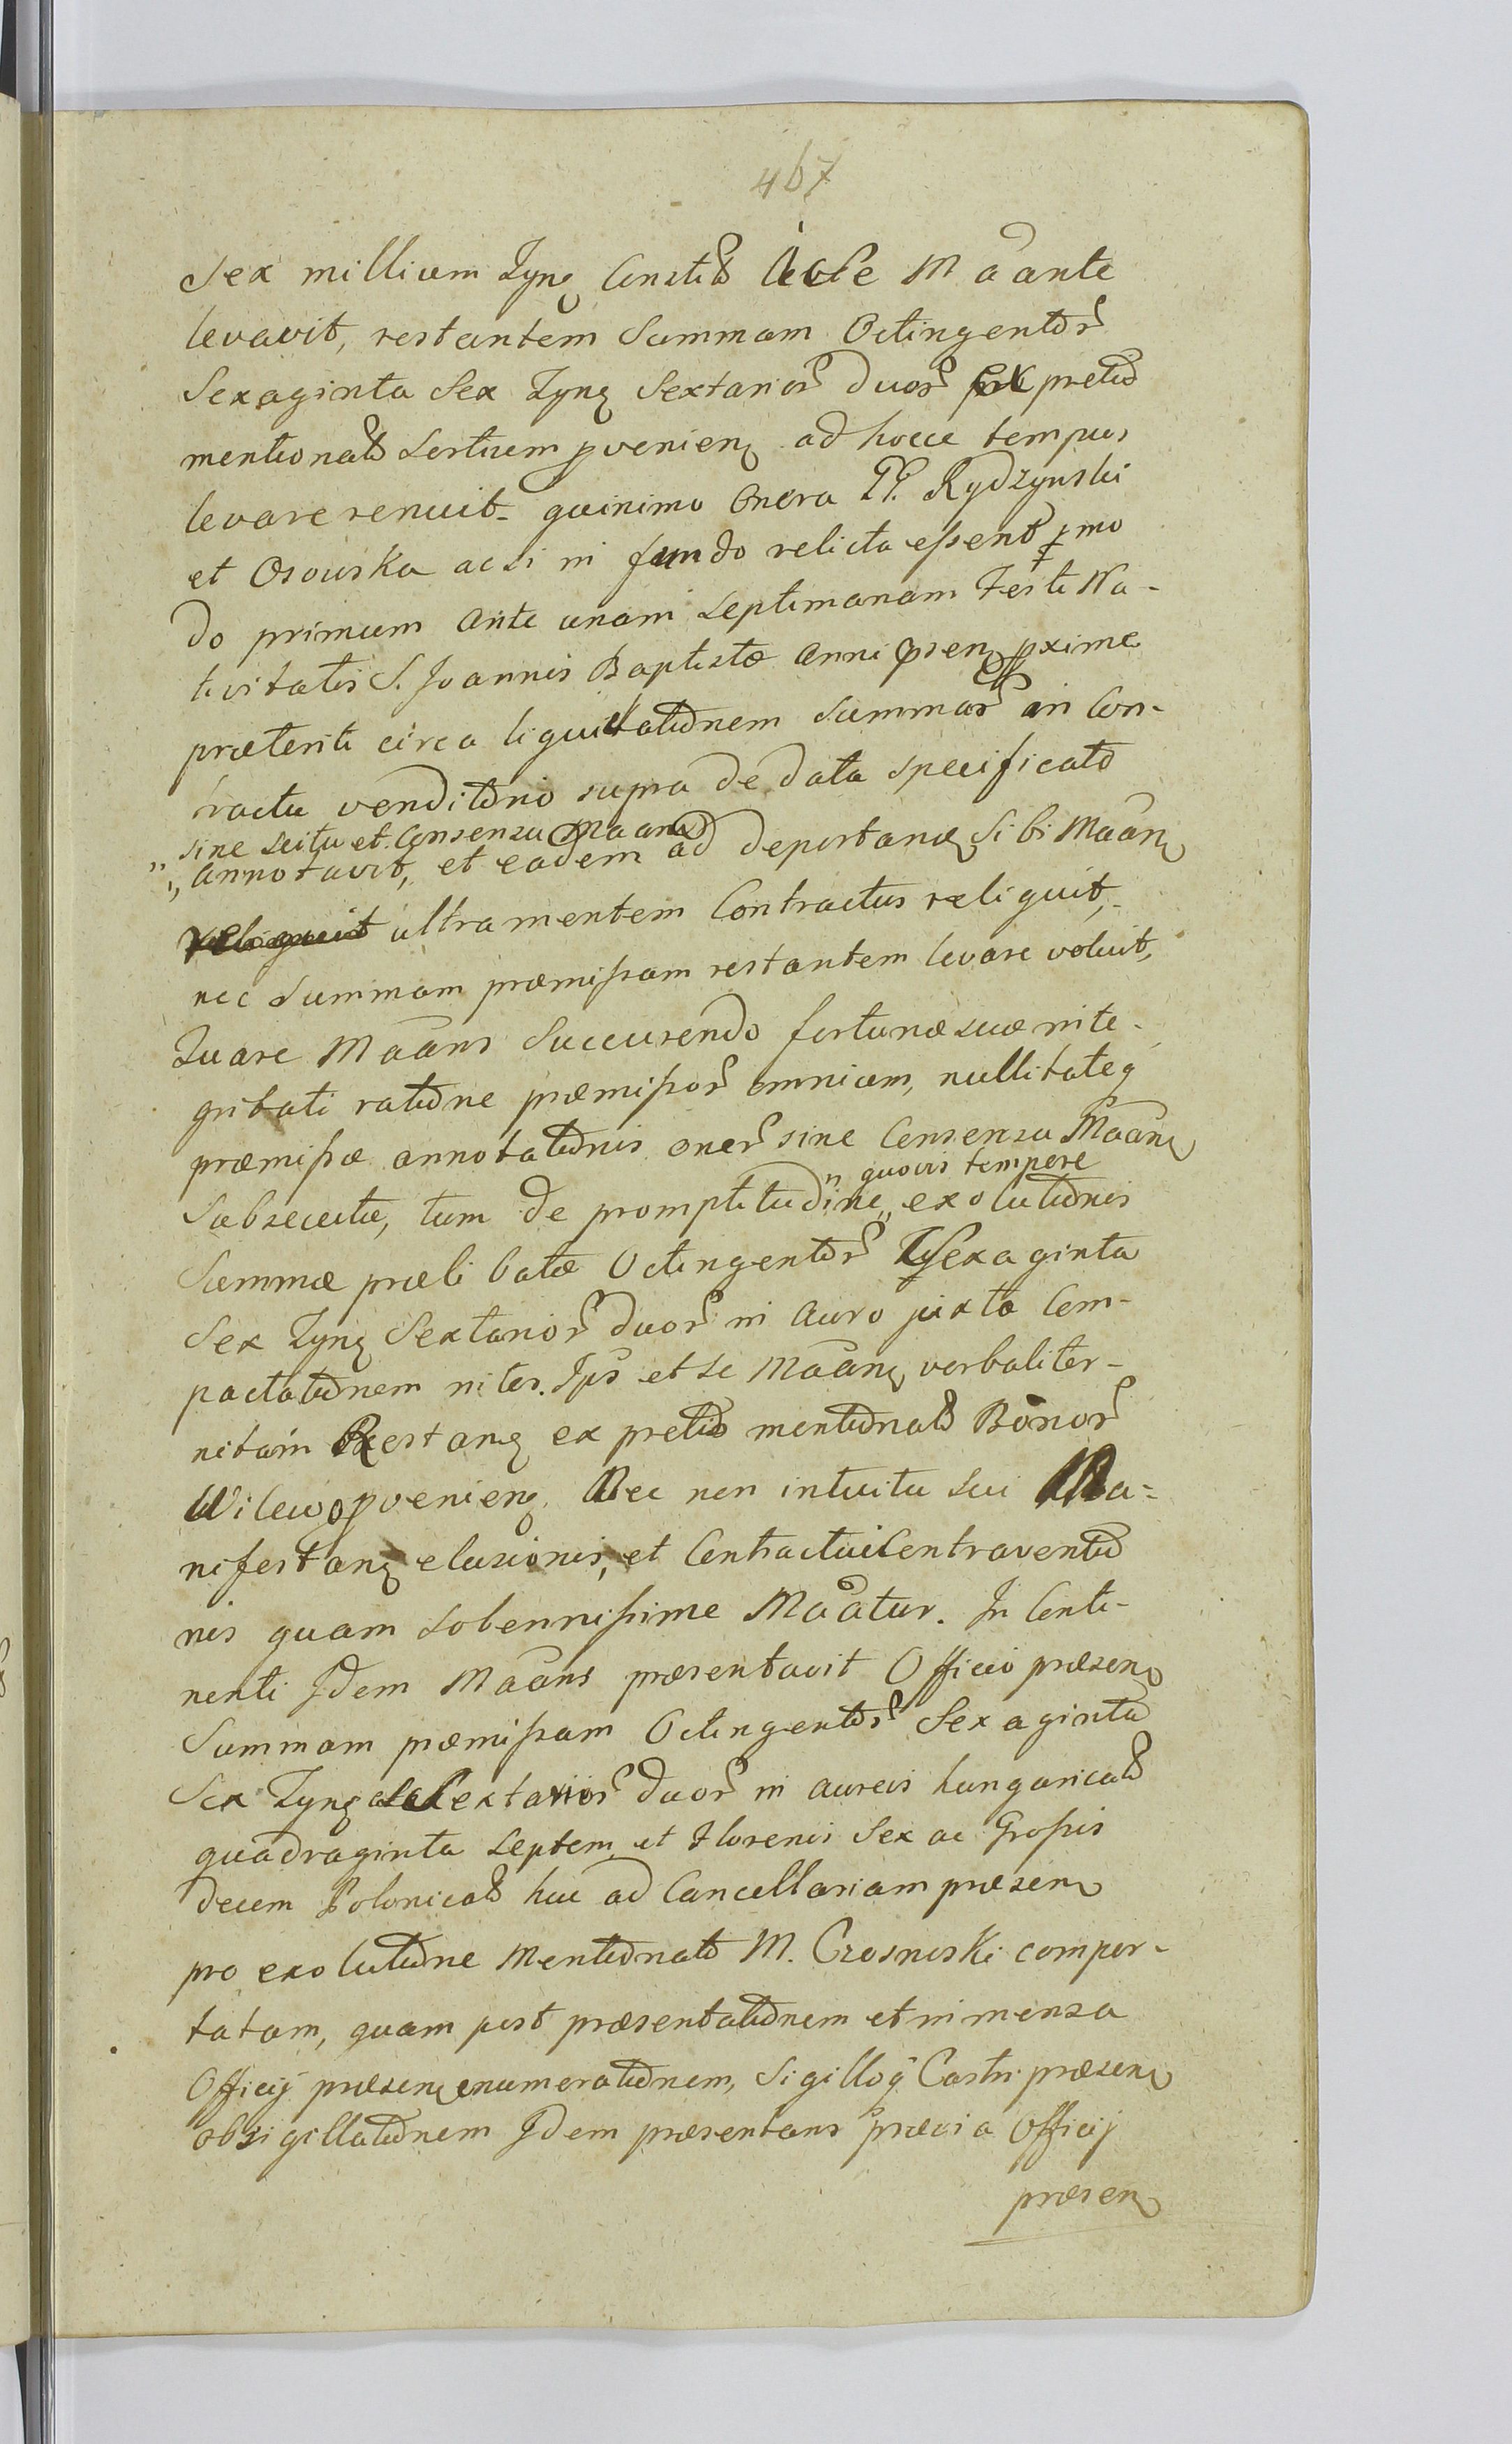 467
Sex millium Tynq Constit a Maante
levavit, restantem Summam Octingentor
Sexaginta Sex Tynq Sextarior duor ex pretio
mentionato sortium pvenienq ad hocce tempus
levare renuit quinimo Onera PP. Rydzynski
et Osowska ac si in fundo relicta essent pmo
do primum ante unam septimanam Festi Na-
tivitatis S. Joannis Baptistæ anni præsenq pxime
præteriti circa liquidationem Summar in Con-
tractu venditorio supra de data specificato
„ sine scitu et Consensu Maanq
„ annotavit, et eadem ad deportanq sibi Maanq
reliquit ultra mentem Contractus reliquit,
nec Summam præmissam restantem levare voluit,
Quare Maans Succurendo fortunæ suæ inte-
gritati ratione præmissor omnium, nullitateq
præmissæ annotationis oner sine Consensu Maanq
„ quovis tempore
Subsecutæ, tum de promptitudine „ exolutionis
Summæ prælibatæ Octingentor Sexaginta
Sex Tynq Sextarior duor in auro juxta Com-
pactationem inter Ips et se Maanq verbaliter
initam Restanq ex pretio mentionato Bonor
Wilewo pvenienq Nec non intuitu sui Ma-
nifestanq elusionis, et Contractui Contraventio
nis quam solennissime Maatur. In Conti-
nenti Idem Maans præsentavit Officio præsenq
Summam præmissam Octingentor Sexaginta
Sex Tynq Sextarior duor in aureis hungaricalb
quadraginta septem et Florenis Sex ac Grossis
decem Polonicalb huc ad Cancellariam præsenq
pro exolutione Mentionato M. Czosnoski compor-
tatam, quam post præsentationem et in mensa
Officij præsenq enumerationem, Sigilloq Castri præsenq
obsigillationem Idem præsentans prævia Officij
præsenq